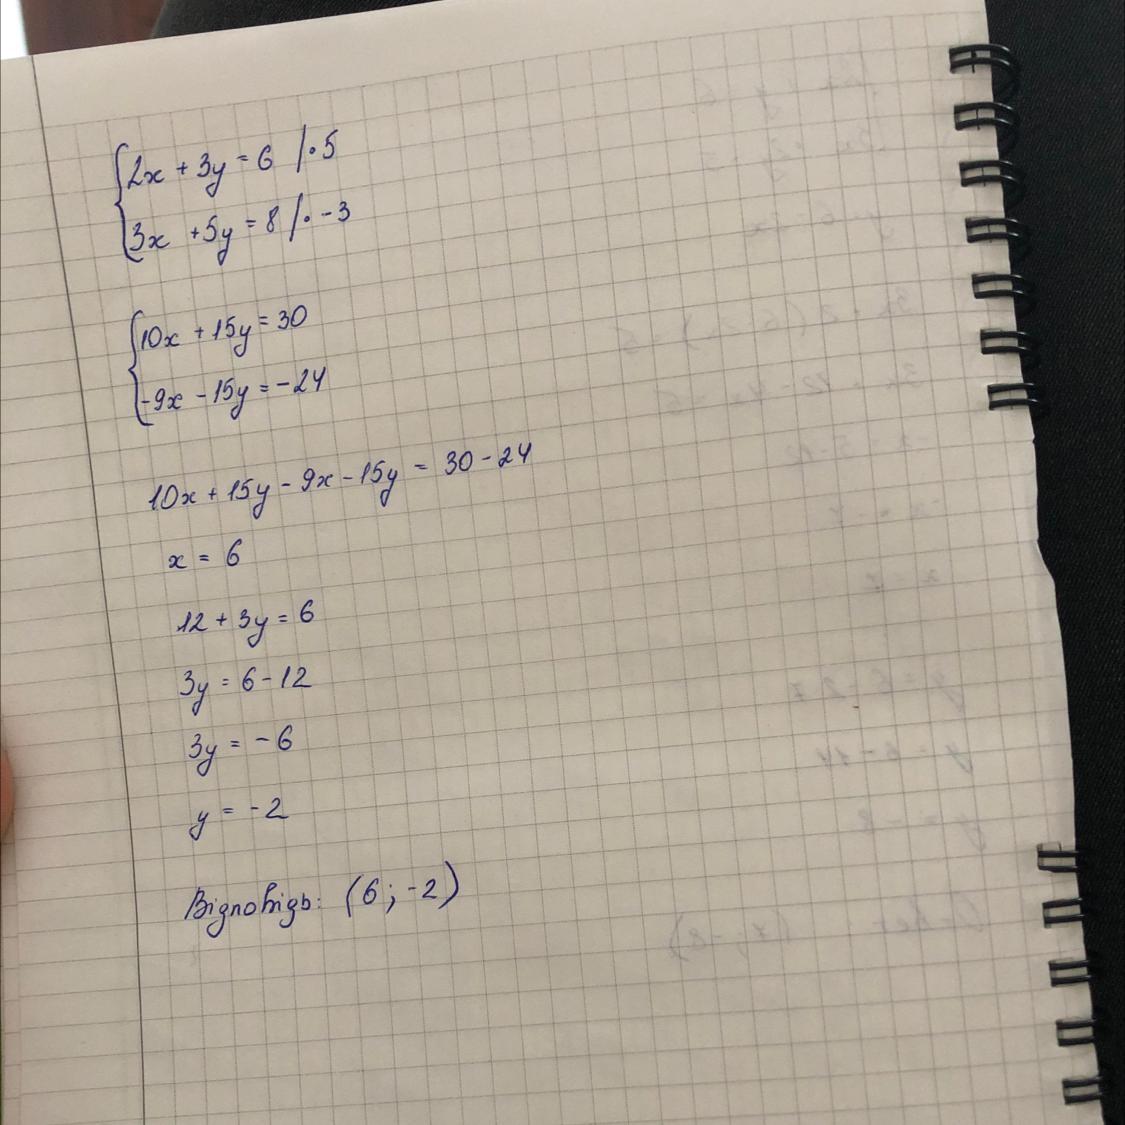 {2x + 3y = 6 /·5
3x + 5y = 8 /·-3
{10x + 15y = 30
-9x - 15y = -24
10x + 15y - 9x - 15y = 30 - 24
x = 6
12 + 3y = 6
3y = 6 - 12
3y = -6
y = -2
Відповідь: (6; -2)